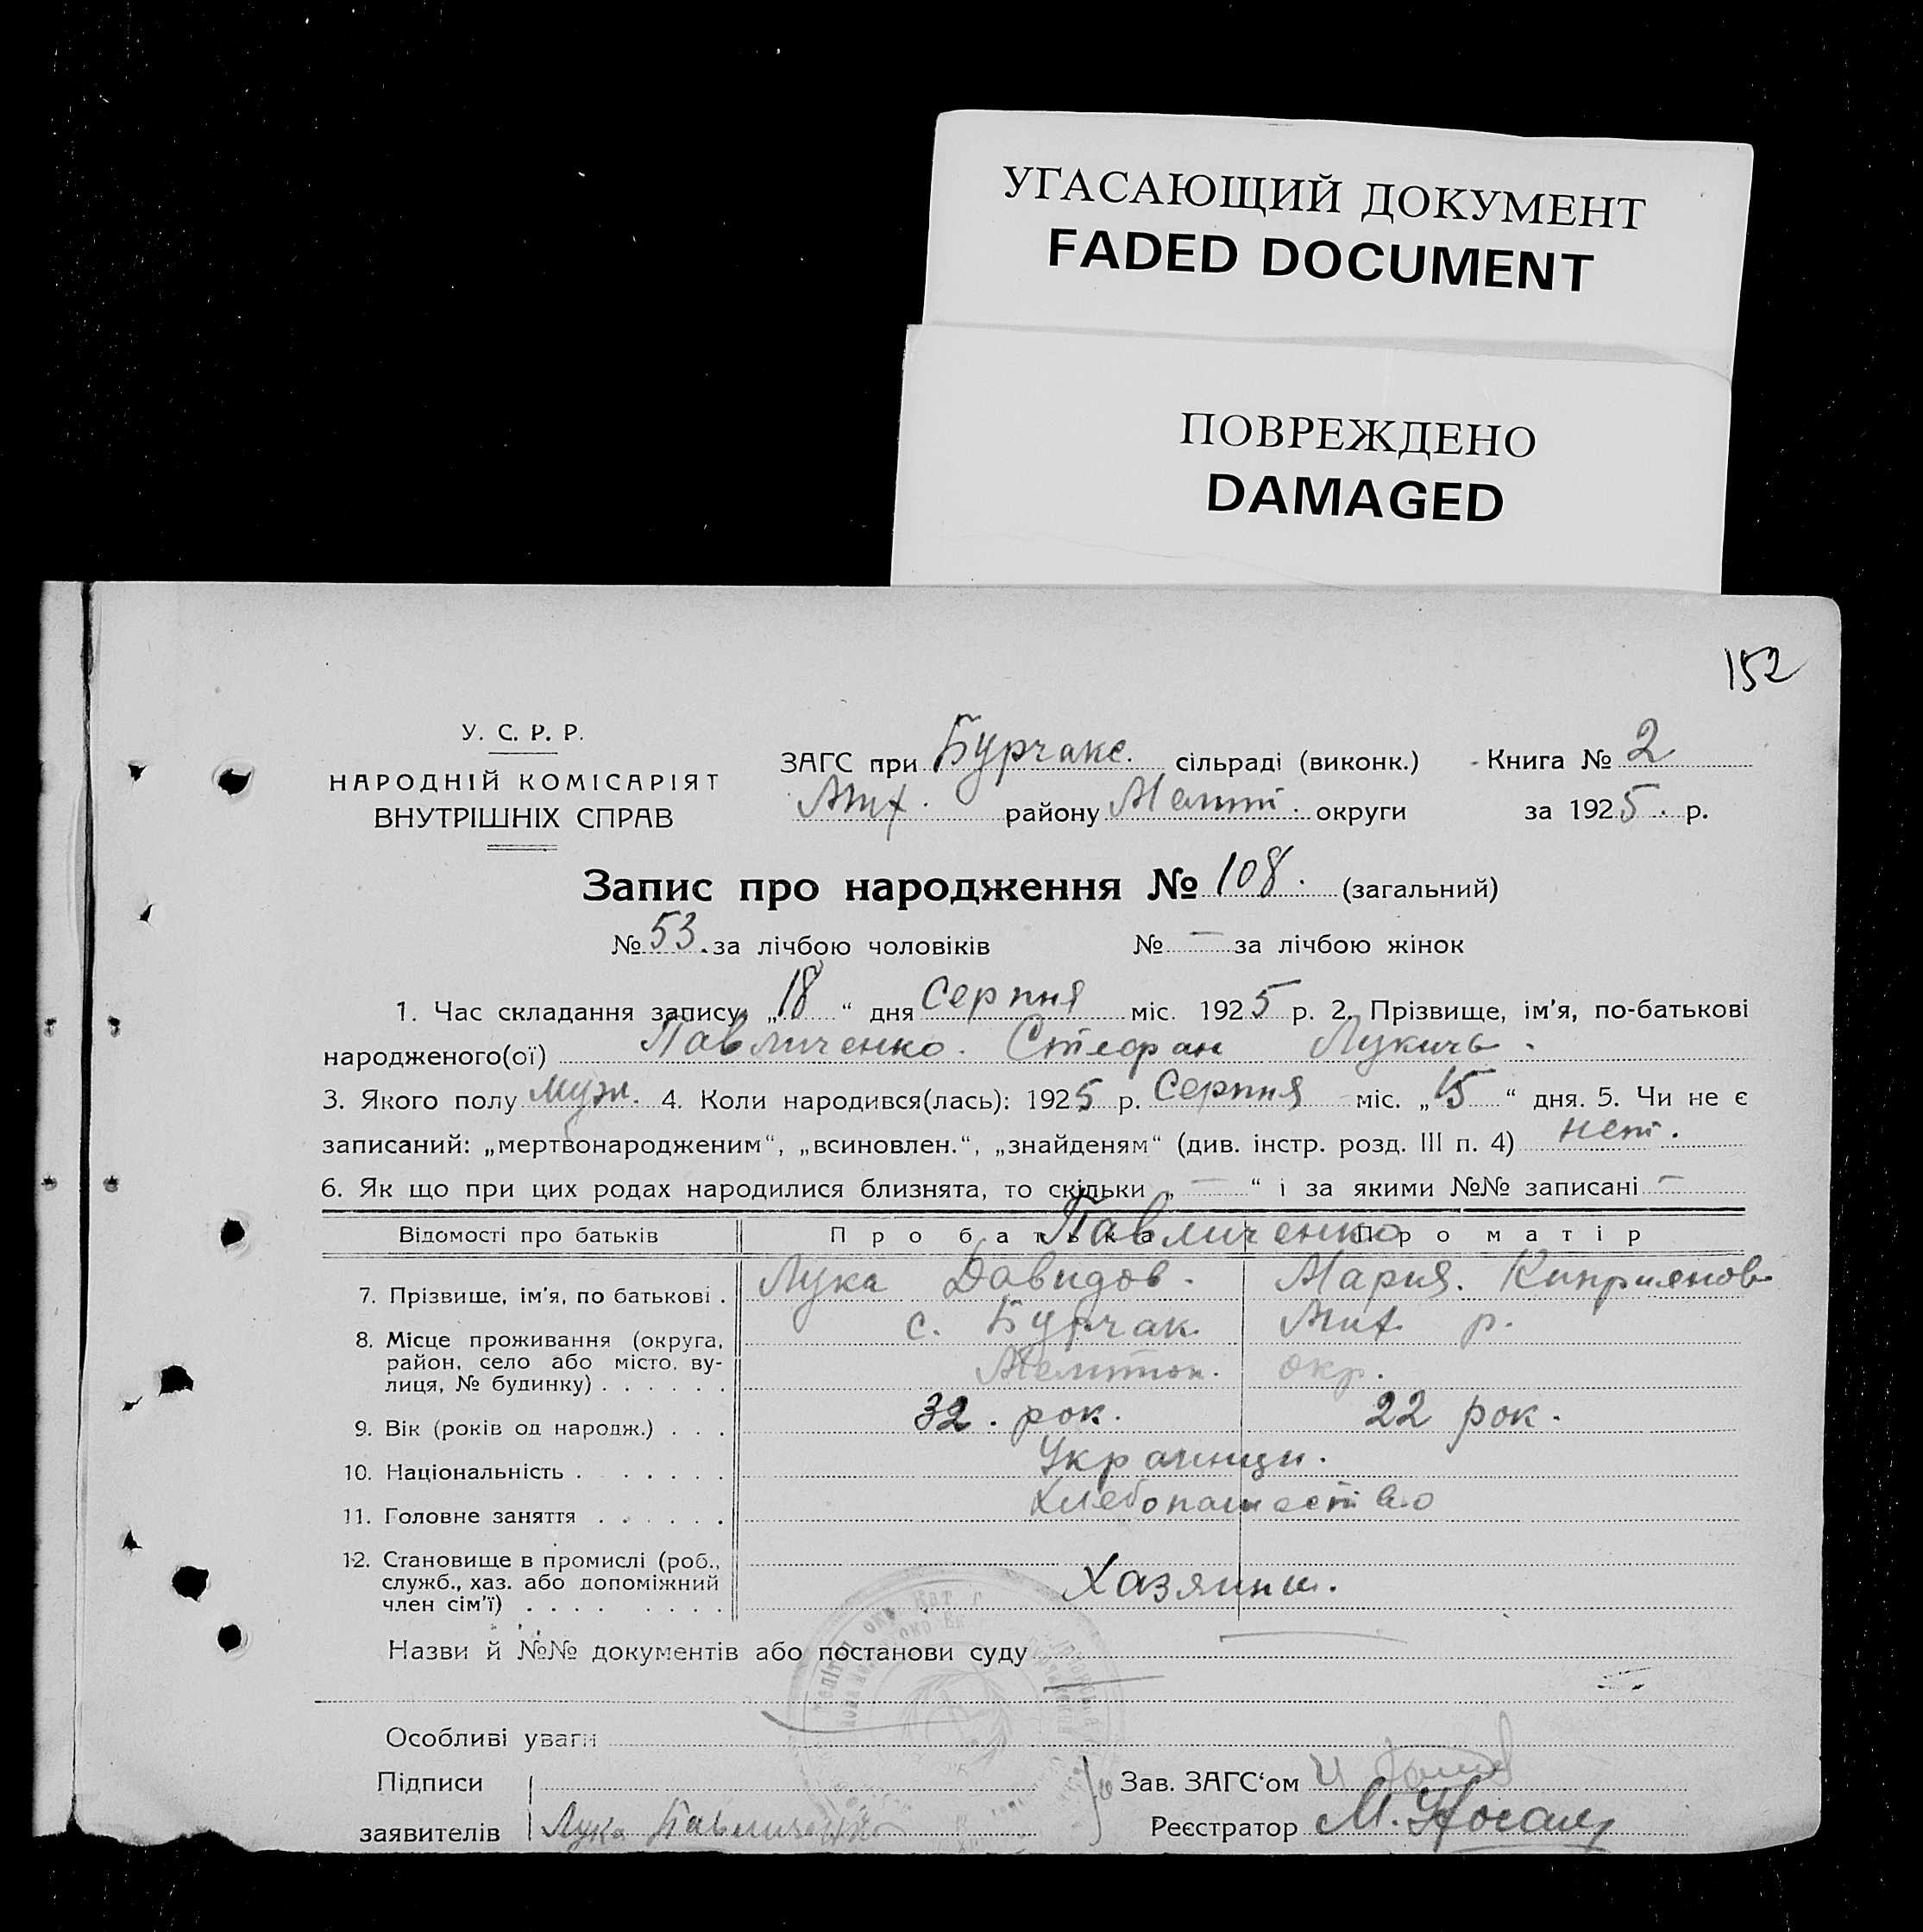 УГАСАЮЩИЙ ДОКУМЕНТ
FADED DOCUMENT
ПОВРЕЖДЕНО
DAMAGED
152
У. С. Р. Р.
НАРОДНІЙ КОМІСАРІЯТ
ВНУТРІШНІХ СПРАВ
ЗАГС при Бурчакс. сільраді (виконк.) Книга № 2
Мих. району Меліт. округи за 1925 р.
Запис про народження № 108. (загальний)
№ 53. за лічбою чоловіків № — за лічбою жінок
1. Час складання запису „18“ дня Серпня міс. 1925 р. 2. Прізвище, ім'я, по-батькові
народженого(ої) Павличенко Стефан Лукичь.
3. Якого полу муж. 4. Коли народився(лась): 1925 р. Серпня міс. „15“ дня. 5. Чи не є
записаний: „мертвонародженим“, „всиновлен.“, „знайденям“ (див. інстр. розд. III п. 4) нет.
6. Як що при цих родах народилися близнята, то скільки „—“ і за якими №№ записані —
Відомості про батьків Про батька Про матір
Павличенко
7. Прізвище, ім'я, по батькові . Лука Давидов. Мария. Киприянов
8. Місце проживання (округа, с. Бурчак Мих. р.
район, село або місто, ву-
лиця, № будинку) . . . . . . Мелитоп. окр.
9. Вік (років од народж.) . . . 32. рок. 22 рок.
10. Національність . . . . . . Украинци.
11. Головне заняття . . . . . . Хлебопашество
12. Становище в промислі (роб.,
служб., хаз. або допоміжний Хазяини.
член сім'ї) . . . . . . . .
Назви й №№ документів або постанови суду
Особливі уваги
Підписи Зав. ЗАГС‘ом
заявителів Лука Павличенко Реєстратор М.